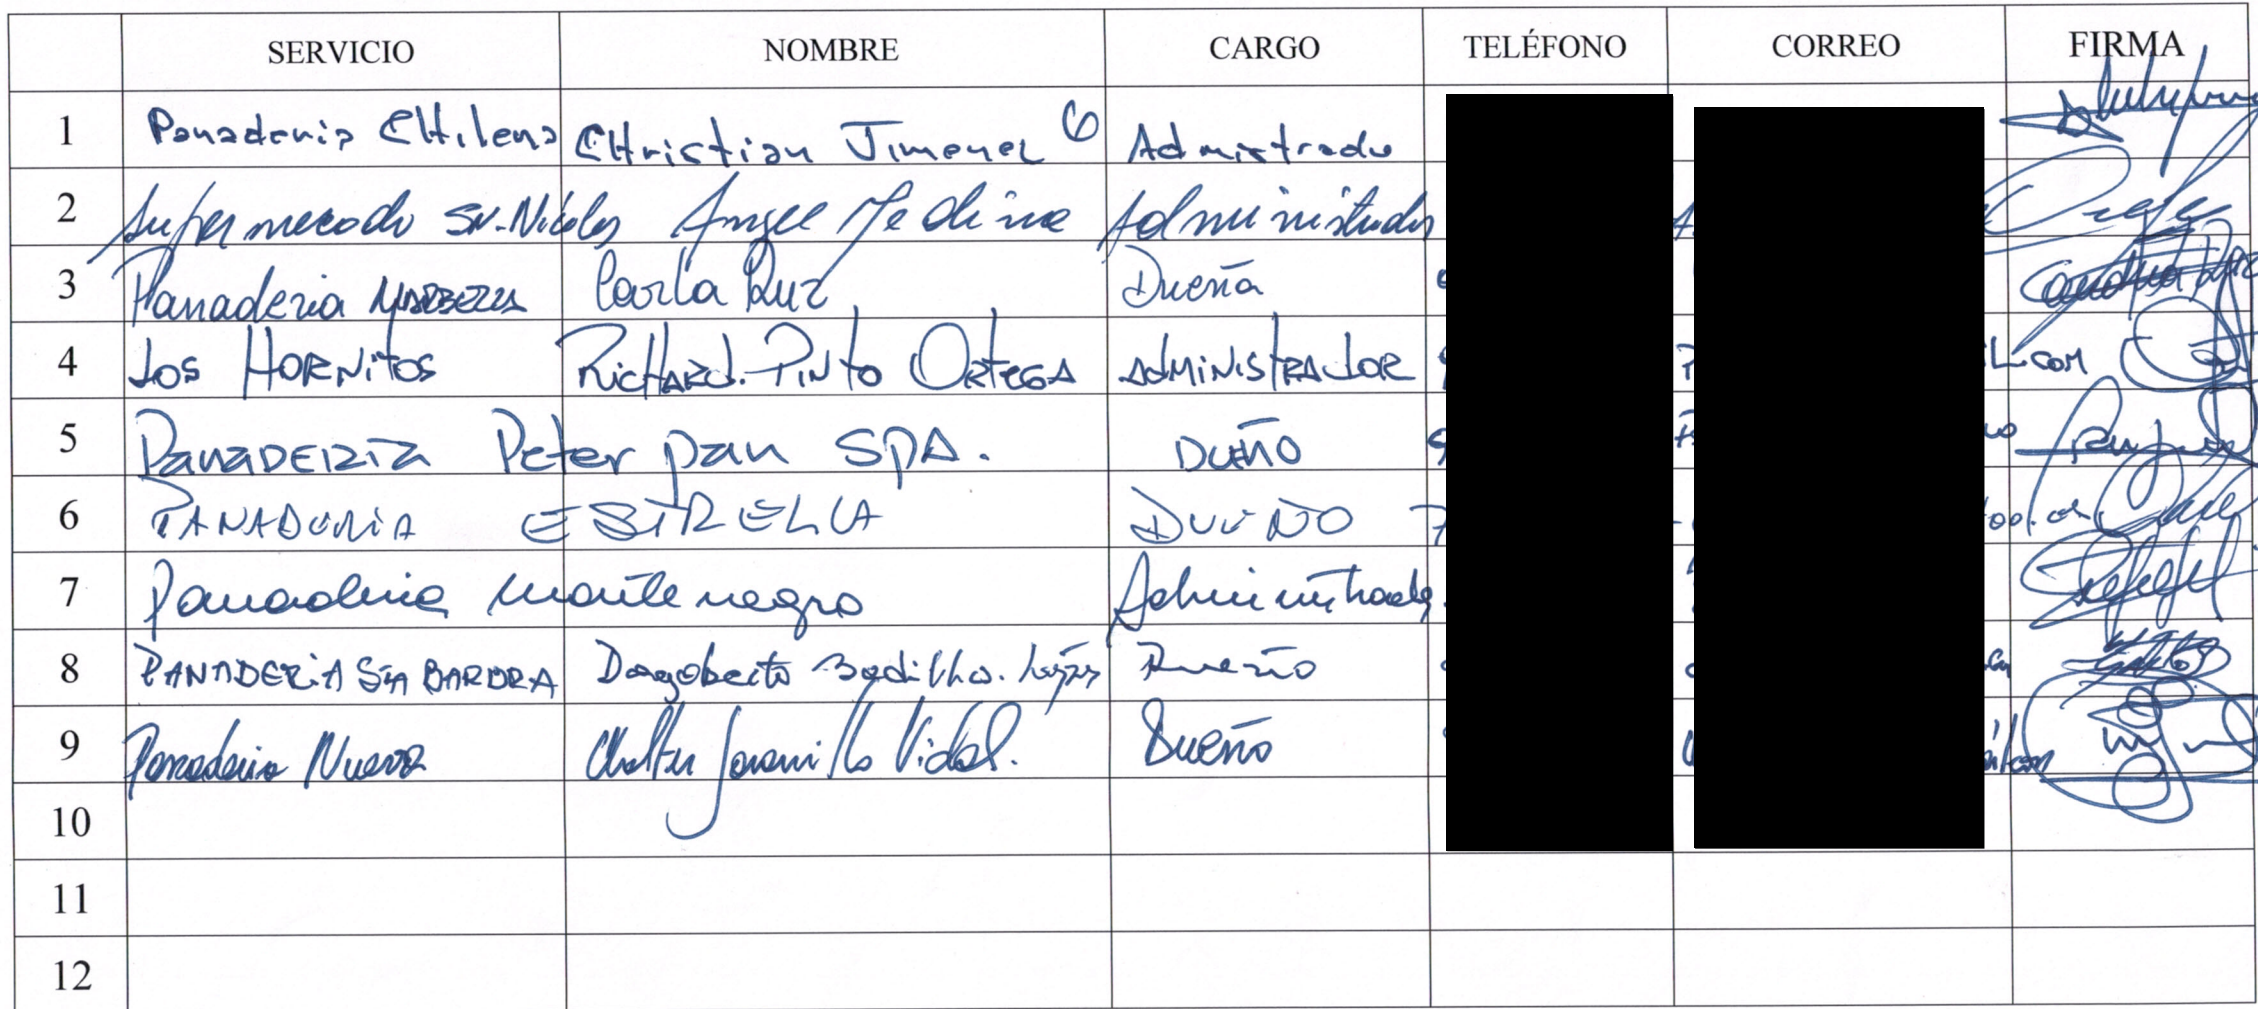 SERVICIO NOMBRE CARGO TELÉFONO CORREO FIRMA
1 Panaderia CHilena CHristian Jimenez G Admistrado
2 Supermercado Sn. Nicolas Angel Medina Administrador
3 Panaderia Carla Ruz Dueña
4 Los HORNitos RicHARd. PiNto ORtEGA AdMiNiStRAdOR iL.com
5 PanaDERIa Peter pan SPA. DUEÑO
6 PANADERIA ESTRELLA DUEÑO
7 Panaderia montenegro Administrador
8 PANADERIA Sta BARBRA Dagoberto Badilla. López Dueño
9 Panaderia Nueva Walter Jaramillo Vidal. Dueño
10
11
12